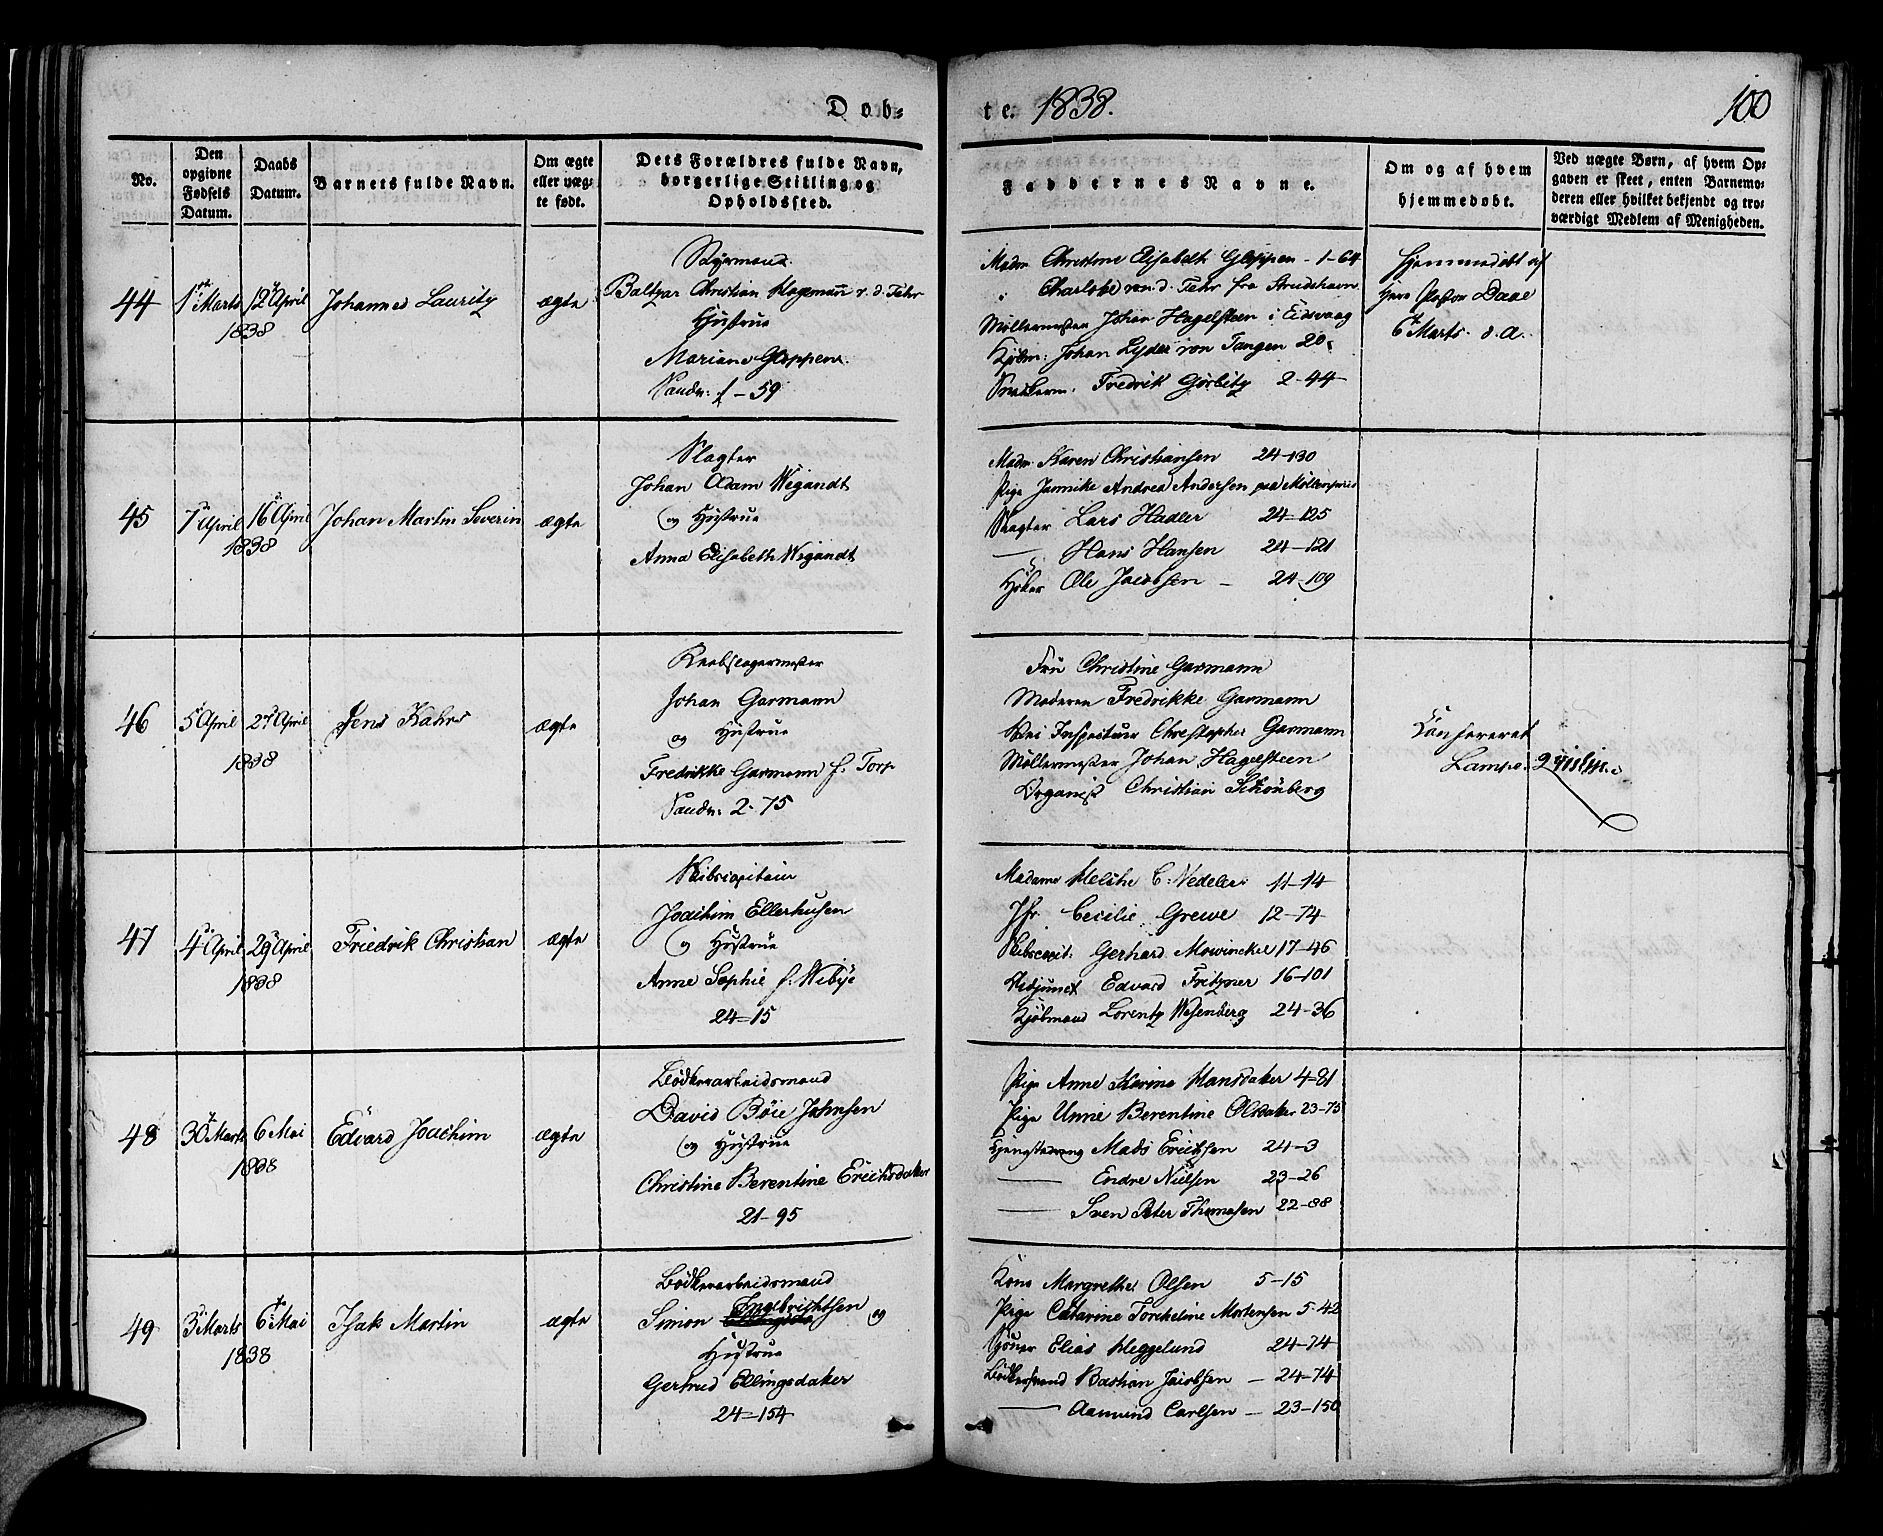 Døb-
te. 1838.
100
No.
Den opgivne Fødsels Datum.
Daabs Datum.
Barnets fulde Navn.
Om ægte eller uæg- te født.
Dets Forældres fulde Navn, borgerlige Stilling og Opholdssted.
Faddernes Navne.
Om og af hvem hjemmedøbt.
Ved uægte Børn, af hvem Op- gaven er skeet, enten Barnemo- deren eller hvilket bekjendt og tro- værdigt Medlem af Menigheden.
44
1 Marts
12 April
1838
Johannes Lauritz
ægte
Styrmand
Baltzar Christian v. d. Fehr
Hustrue
Mariane Gloppen
Sandv: f - 59
Madm Christine Elisabeth Gloppen - 1-64
" Charlotte von d. Fehr fra Strudshavn
Møllermester Johan Hagelsteen i Eidsvaag
Kjøbm: Johan Lyder von Tangen 20
Fredrik Görbitz 2-44
Hjemmedøbt af
Herr Pastor Daae
6 Marts. d. A.
45
7 April
16 April
1838
Johan Martin Severin
ægte
Slagter
Johan Adam Wigandt
og Hustrue
Anna Elisabeth Wigandt
Madm Karen Christiansen 24-130
Pige Jannike Andrea Andersen paa Møllenpriis
Slagter Lars Hadler 24-125
— Hans Hansen 24-121
Høker Ole Jacobsen - 24-109
46
5 April
27 April
1838
Jens Kahrs
ægte
Reebslagermester
Johan Garmann
og Hustrue
Fredrikke Garmann f. Torp
Sandv: 2-75
Fru Christine Garmann
Moderen Fredrikke Garmann
Inspecteur Christopher Garmann
Møllermester Johan Hagelsteen
Organist Christian Schönberg
47
4 April
29 April
1838
Friedrik Christian
ægte
Skibscapitain
Joachim Ellerhusen
og Hustrue
Anne Sophie f. Wibye
24-15
Madame C. Nedeler 11-14
Jfr. Cecilie Grewe 12-74
Skibscapit: Gerhard Mowinckel 17-46
Adjunct Edvard Fritzner 16-101
Kjøbmand Lorentz Wesenberg 24-36
48
30 Marts
6 Mai
1838
Edvard Joachim
ægte
Bødkerarbeidsmand
David Böie Johnsen
og Hustrue
Christine Berentine Erichsdatter
21-95
Pige Anne Karina Hansdatter 4-81
Pige Unni Berentine Olsdatter 23-75
Mads Erichsen 24-3
— Endre Nielsen 23-26
— Sven Peter Thomesen 22-88
49
3 Marts
6 Mai
1838
Isak Martin
ægte
Bødkerarbeidsmand
Simon Ingebrichtsen og
Hustrue
Gertrud Ellingsdatter
24-154
Kone Margrethe Olsen 5-15
Pige Catarine Torcheline Mortensen 5-42
Elias Heggelund 24-74
Bødkersvend Bastian Jacobsen - 24-74
— Aamund Carlsen - 23-150